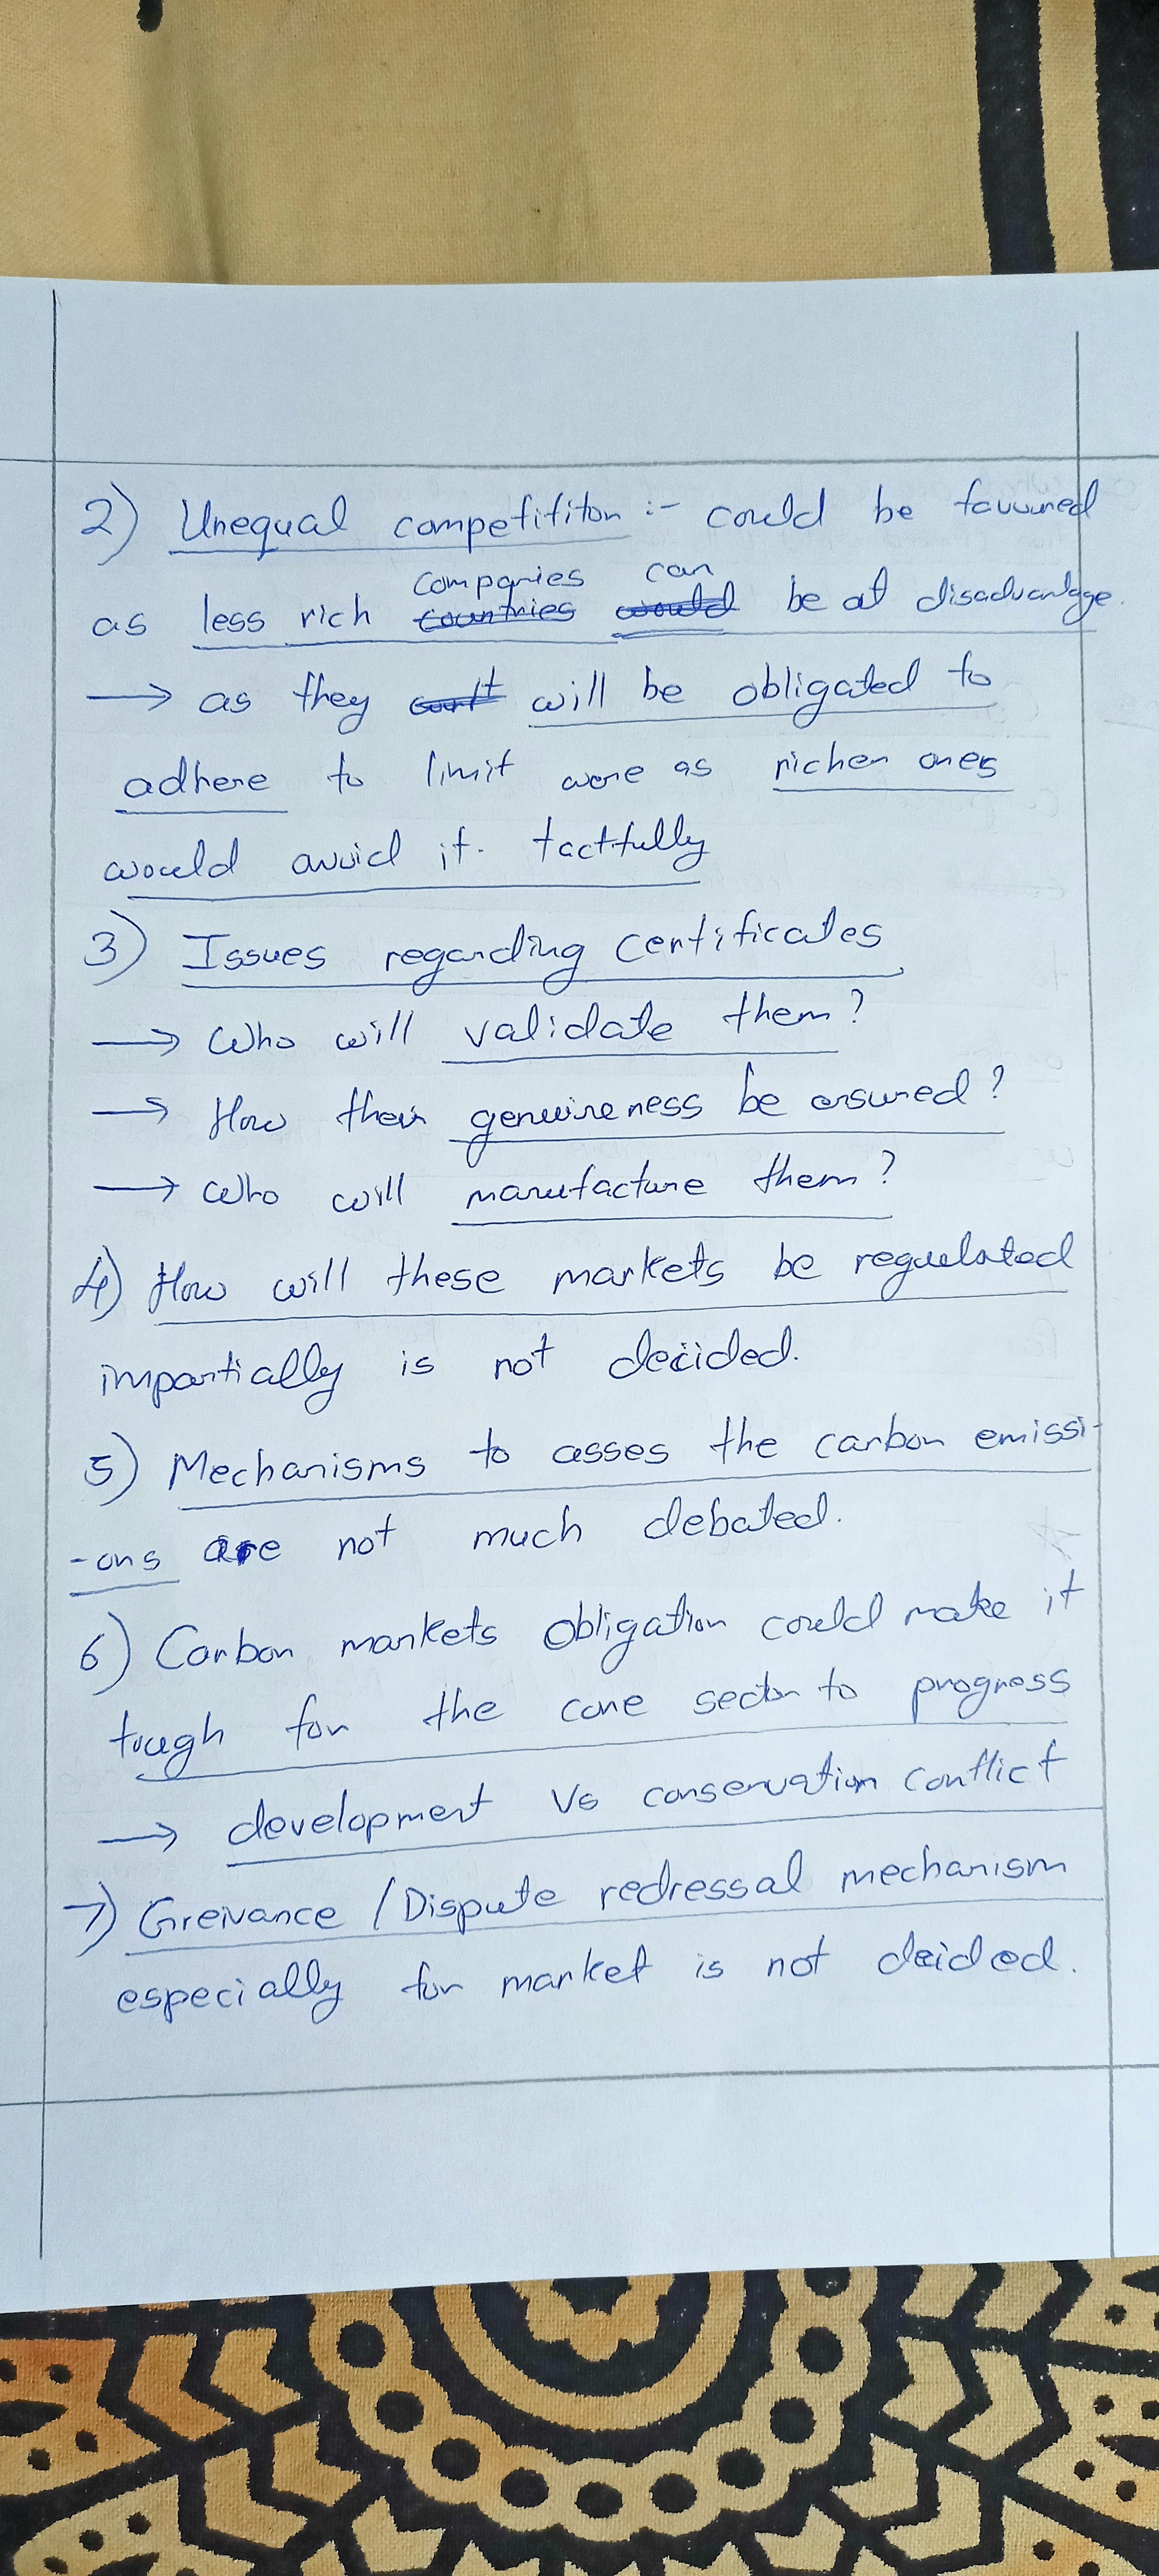 2) Unequal competifiton :- could be favoured
companies can
as less rich countries would be at disadvantage.
→ as they will be obligated to
adhere to limit were as richer ones
would avoid it. tactfully
3) Issues regarding certificates
→ Who will validate them?
→ How their genuineness be ensured?
→ Who will manufacture them?
4) How will these markets be regulated
impartially is not decided.
5) Mechanisms to asses the carbon emissi-
-ons are not much debated.
6) Carbon markets obligation could make it
tough for the core sector to progress
→ development Vs conservation conflict
7) Greivance / Dispute redressal mechanism
especially for market is not deided.